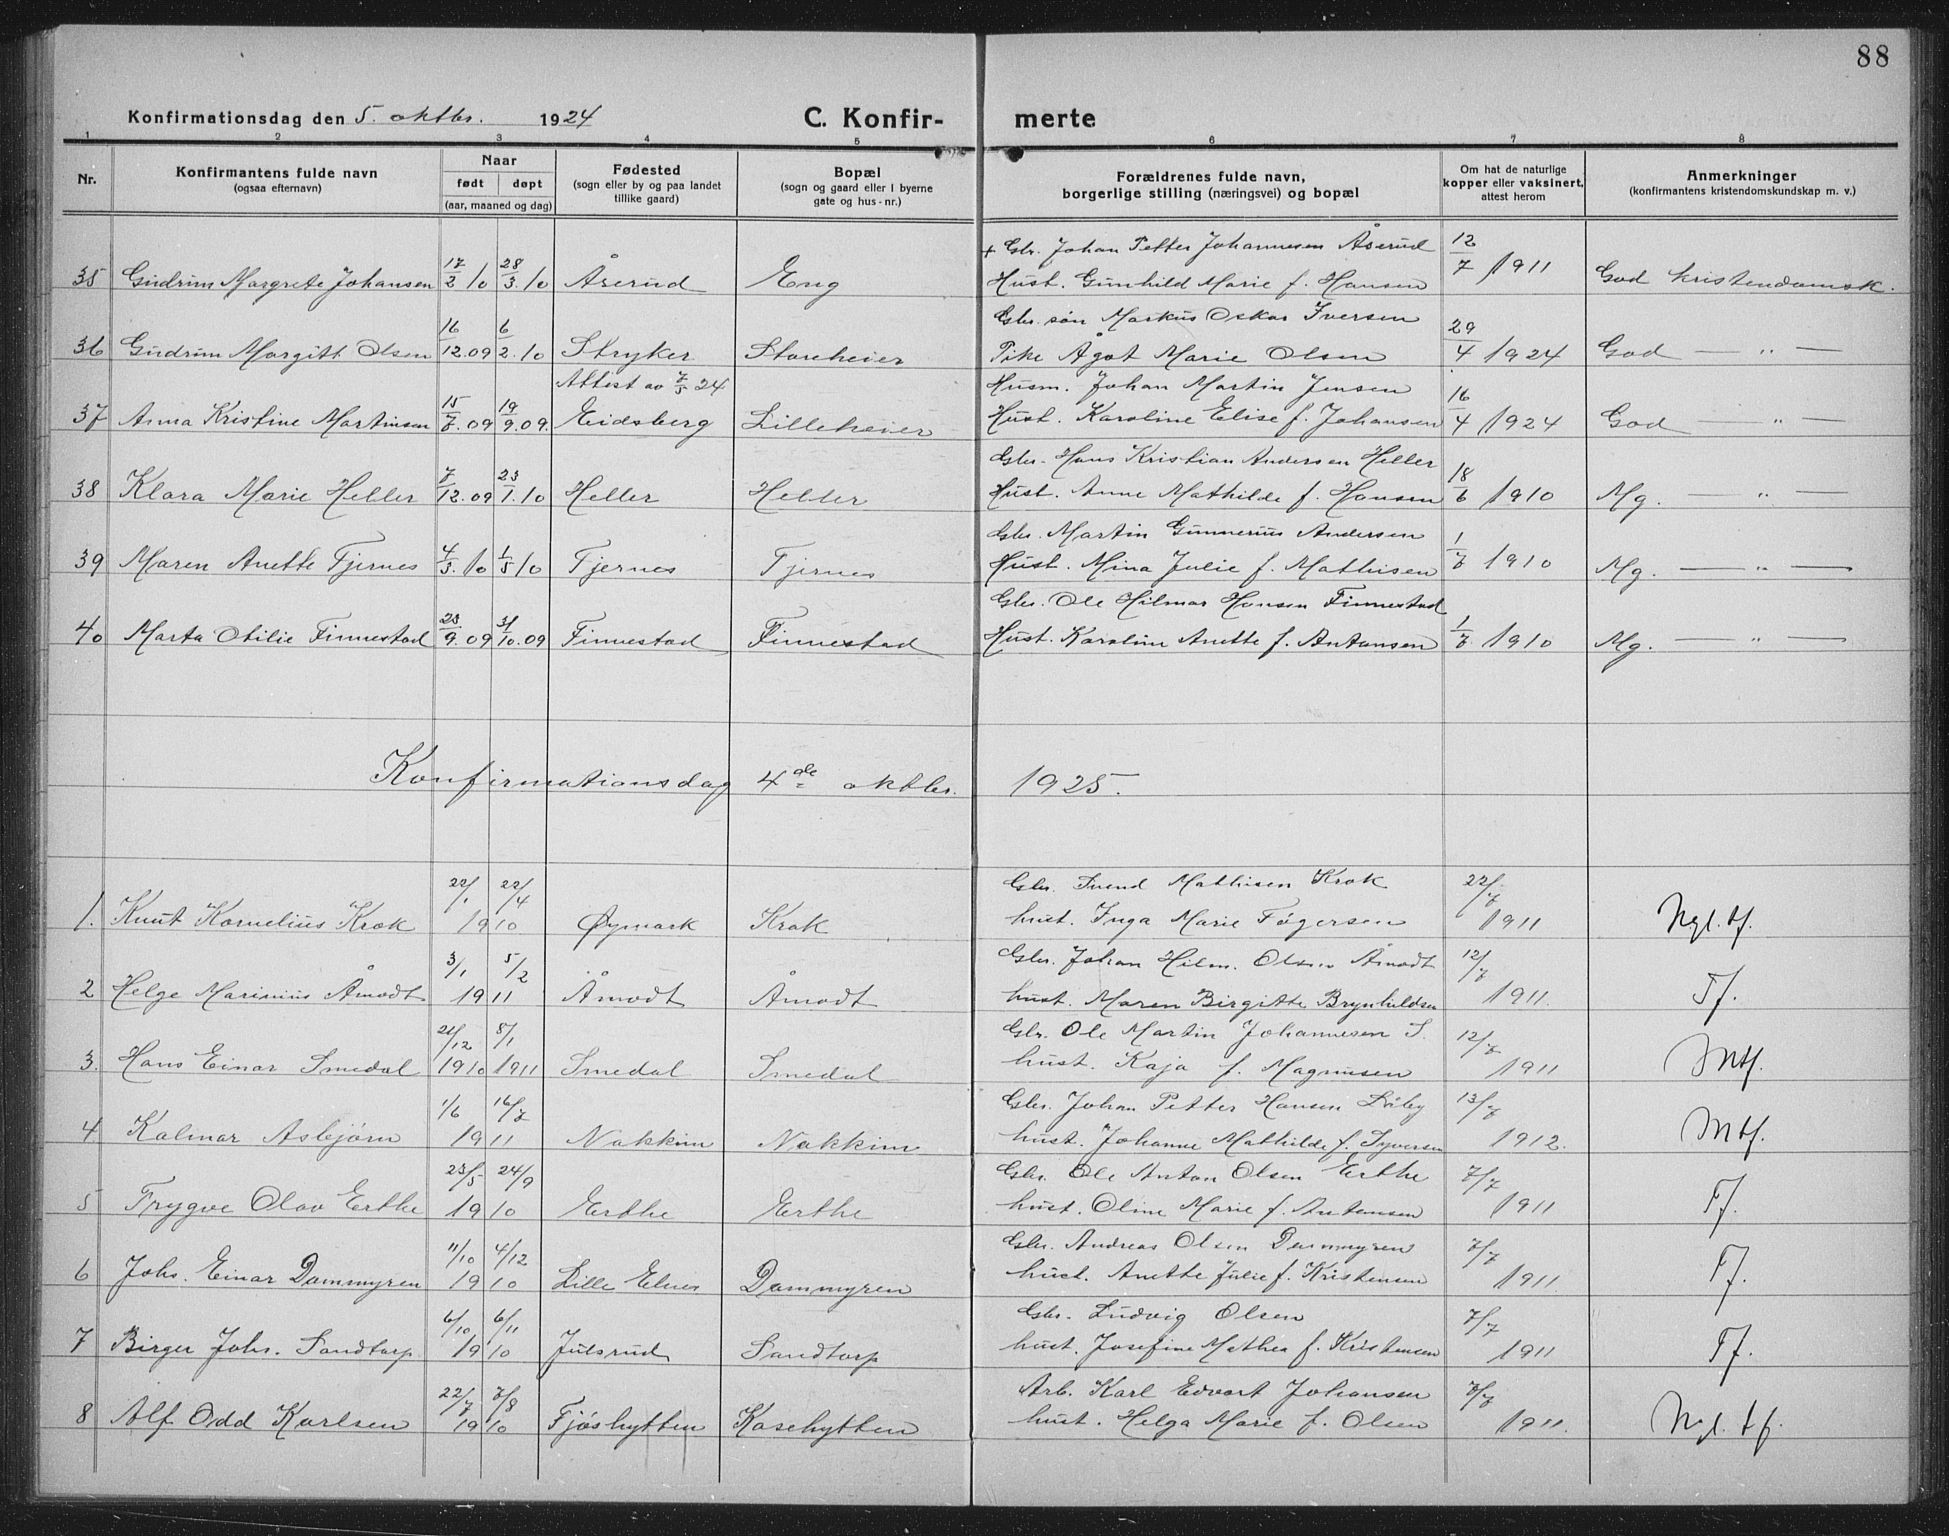 88
Konfirmationsdag den 5. oktbr. 1924 C. Konfir- merte
1 2 3 4 5 6 7 8
Nr.
Konfirmantens fulde navn
(ogsaa efternavn)
Naar
født døpt
(aar, maaned og dag)
Fødested
(sogn eller by og paa landet
tillike gaard)
Bopæl
(sogn og gaard eller i byerne
gate og hus-nr.)
Forældrenes fulde navn,
borgerlige stilling (næringsvei) og bopæl
Om hat de naturlige
kopper eller vaksinert,
attest herom
Anmerkninger
(konfirmantens kristendomskundskap m. v.)
+ Gbr. Johan Petter Johannesen Åserud 12
35 Gudrun Margrete Johansen 17/2 10 28/3 10 Åserud Eng Hust. Gunhild Marie f. Hansen 7 1911 God kristendomsk.
Gbr. søn Markus Oskar Iversen
36 Gudrun Margitt Olsen 16/12.09 6/2.10 Stryker Storeheier Pike Ågot Marie Olsen 29/4 1924 God — " —
Attest av 7/5 24 Husm. Johan Martin Jensen
37 Anna Kristine Martinsen 15/7.09 19/9.09. Eidsberg Lilleheier Hust. Karoline Elise f. Johansen 16/4 1924 God — " —
Gbr. Hans Kristian Andersen Heller
38 Klara Marie Heller 7/12.09 23/1.10 Heller Heller Hust. Anne Mathilde f. Hansen 18/6 1910 Mg. — " —
Gbr. Martin Gunnerius Andersen
39 Maren Anette Tjernes 4/3.10 1/5 10 Tjernes Tjernes Hust. Mina Julie f. Mathisen 1/7 1910 Mg. — " —
Gbr. Ole Hilmar Hansen Finnestad
40 Marta Otilie Finnestad 23/9.09 31/10.09 Finnestad Finnestad Hust. Karoline Anette f. Antonsen 1/7. 1910 Mg. — " —
Konfirmationsdag 4de oktbr. 1925.
22/1 22/4 Gbr. Svend Mathisen Krok 22/7
1. Knut Kornelius Krok 1910 Øymark Krok hust. Inga Marie Føgersen 1911 Ngl. tf.
3/1 5/2 Gbr. Johan Hilm. Olsen Åmodt 12/7
2 Helge Marinius Åmodt 1911 Åmodt Åmodt hust. Maren Birgitte Brynhildsen 1911. Tf.
21/12 8/1 Gbr. Ole Martin Johannesen S. 12/7
3. Hans Einar Smedal 1910 1911 Smedal Smedal hust. Kaja f. Magnusen 1911 Mtf.
1/6 16/7 Gbr. Johan Petter Hansen 13/7
4 Kalmar Asbjørn 1911 Nakkim Nakkim hust. Johanne Mathilde f. Syversen 1912. Mtf.
23/5 24/9 Gbr. Ole Anton Olsen Erthe 7/7
5 Trygve Olav Erthe 1910 Erthe Erthe hust. Oline Marie f. Antonsen 1911 Tf.
11/10 4/12 Gbr. Andreas Olsen Dammyren 7/7
6 Johs. Einar Dammyren 1910 Lille Elnes Dammyren hust. Anette Julie f. Kristensen 1911. Tf.
6/10 6/11 Gbr. Ludvig Olsen 7/7
7 Birger Johs. Sandtorp 1910 Julsrud Sandtorp hust. Josefine Mathea f. Kristensen 1911 Tf.
22/7 7/8 Arb. Karl Edvart Johansen 7/7
8 Alf Odd Karlsen 1910 Fjøshytten Kasehytten hust. Helga Marie f. Olsen 1911. Ngl. tf.